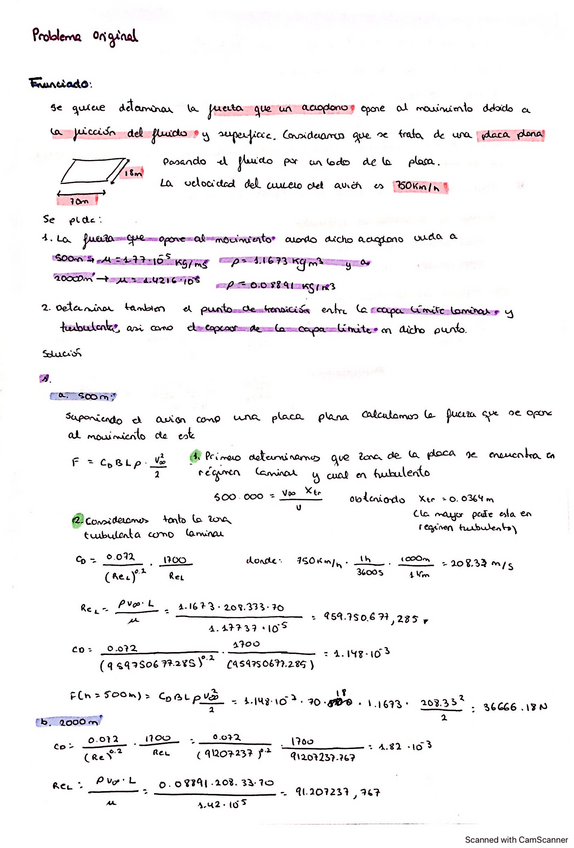 Problema original
Enunciado:
Se quiere determinar la fuerza que un aeroplano opone al movimiento debido a
la fricción del fluido y superficie. Consideramos que se trata de una placa plana
Pasando el fluido por un lado de la placa.
18m
La velocidad del avión es 750 Km/h
70m
Se pide:
1. La fuerza que opone al movimiento cuando dicho aeroplano vuela a
500m → μ = 1.77·10⁻⁵ Kg/ms ρ = 1.1673 Kg m³ y a
20000m → μ = 1.4216·10⁻⁵ ρ = 0.08891 KG/m3
2. Determinar tambien el punto de transición entre la capa límite laminar y
turbulenta, asi como el espesor de la capa límite en dicho punto.
Solución
1.
a. 500m:
Suponiendo el avion como una placa plana calculamos la fuerza que se opone
al movimiento de este
F = C_D B L ρ · V∞²/2
1. Primero determinamos que zona de la placa se encuentra en
régimen laminar y cual en turbulento
500.000 = V∞ Xtr / υ obteniendo Xtr = 0.0364m
(la mayor parte esta en
regimen turbulento)
2. Consideramos tanto la zona
turbulenta como laminar
C_D = 0.072/(Re_L)^0.2 · 1700/Re_L donde: 750 Km/h · 1h/3600s · 1000m/1Km = 208.33 m/s
Re_L = ρ V∞ · L / μ = 1.1673 · 208.333 · 70 / 1.17737 · 10⁻⁵ = 959.750.677,285
CD = 0.072/(959750677.285)^0.2 · 1700/(959750677.285) = 1.148·10⁻³
F(h = 500m) = C_D B L ρ V∞²/2 = 1.148·10⁻³ · 70 · 18 · 1.1673 · 208.33²/2 = 36666.18N
b. 2000m
CD = 0.072/(Re)^0.2 · 1700/Re_L = 0.072/(91207237)^0.2 · 1700/91207237.767 = 1.82·10⁻³
Re_L = ρ V∞ · L / μ = 0.08891 · 208.33 · 70 / 1.42·10⁻⁵ = 91.207237,767
Scanned with CamScanner